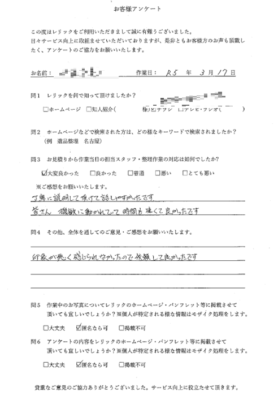 お客様アンケート
この度はレリックをご利用いただきまして誠に有難うございました。
日々サービス向上に取組ませていただいておりますが、是非ともお客様方のお声も拝聴し
たく、アンケートのご協力をお願いいたします。
お名前： 作業日： R5 年 3月17日
問1 レリックを何で知って頂けましたか？
□ホームページ □知人紹介（
問2 ホームページなどで検索された方は、どの様なキーワードで検索されましたか？
（例 遺品整理 名古屋）
問3 お見積りから作業当日の担当スタッフ・整理作業の対応は如何でしたか？
☑大変良かった □良かった □普通 □悪い □とても悪い
※ご感想をお願いいたします。
丁寧に説明して頂けて話しやすかったです
皆さん 機敏に動かれてて 時間も速くて良かったです
問4 その他、全体を通してのご意見・ご感想をお願いいたします。
印象が悪く感じられなかったので依頼して良かったです
問5 作業中のお写真についてレリックのホームページ・パンフレット等に掲載させて
頂いても宜しいでしょうか？※個人が特定される様な情報はモザイク処理をします。
□大丈夫 ☑匿名なら可 □掲載不可
問6 アンケートの内容をレリックのホームページ・パンフレット等に掲載させて
頂いても宜しいでしょうか？※個人が特定される様な情報はモザイク処理をします。
□大丈夫 ☑匿名なら可 □掲載不可
貴重なご意見のご協力ありがとうございました。サービス向上に役立たせて頂きます。